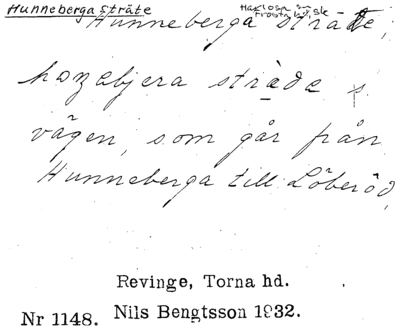 Hunneberga Sträte
Harlösa sn, Sk
Frosta hd,
Hunneberga sträte,
hɔnebjera strädɛ
vägen, som går från
Hunneberga till Löberöd,
Revinge, Torna hd.
Nr 1148. Nils Bengtsson 1932.